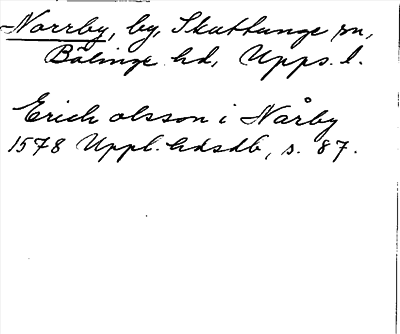 Norrby, by, Skuttunge sn,
Bälinge hd, Upps. l.
Erich olsson i Nårby
1578 Uppl. hdsdb, s. 87.